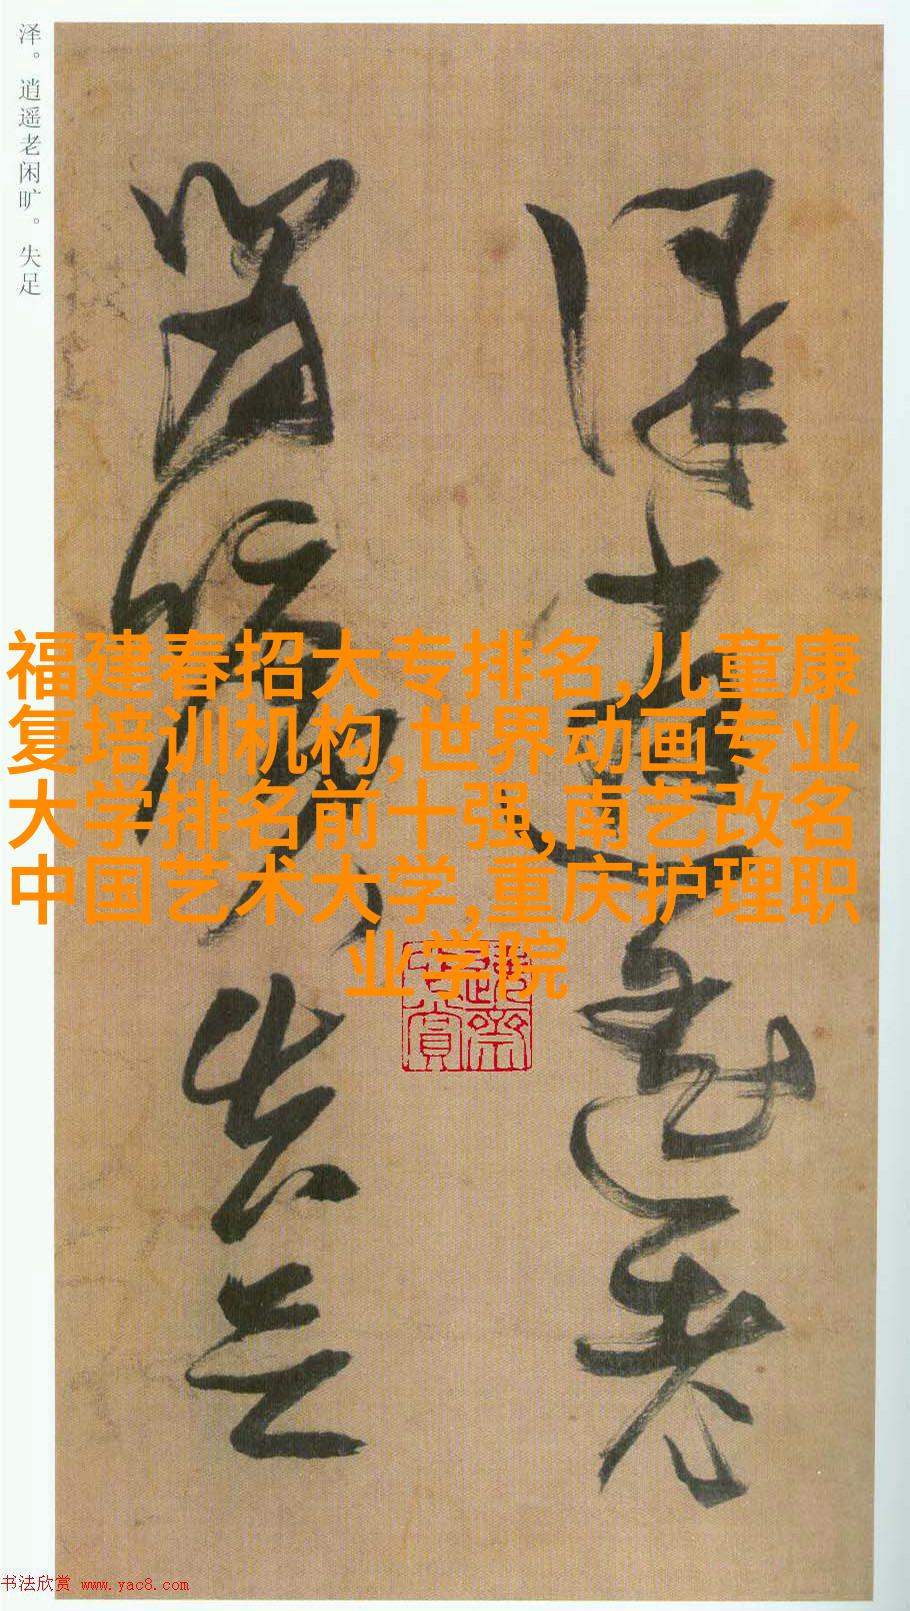 泽。逍遥老闲旷。失足
泽逍遥老
闲旷失足
福建春招大专排名,儿童康
复培训机构,世界动画专业
大学排名前十强,南艺改名
中国艺术大学,重庆护理职
业学院
书法欣赏 www.yac8.com